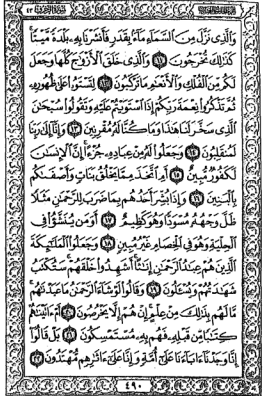 وَٱلَّذِى نَزَّلَ مِنَ ٱلسَّمَآءِ مَآءًۢ بِقَدَرٍ فَأَنشَرْنَا بِهِۦ بَلْدَةً مَّيْتًا
كَذَٰلِكَ تُخْرَجُونَ ۝١١ وَٱلَّذِى خَلَقَ ٱلْأَزْوَٰجَ كُلَّهَا وَجَعَلَ
لَكُم مِّنَ ٱلْفُلْكِ وَٱلْأَنْعَٰمِ مَا تَرْكَبُونَ ۝١٢ لِتَسْتَوُۥا عَلَىٰ ظُهُورِهِۦ
ثُمَّ تَذْكُرُوا نِعْمَةَ رَبِّكُمْ إِذَا ٱسْتَوَيْتُمْ عَلَيْهِ وَتَقُولُوا سُبْحَٰنَ
ٱلَّذِى سَخَّرَ لَنَا هَٰذَا وَمَا كُنَّا لَهُۥ مُقْرِنِينَ ۝١٣ وَإِنَّآ إِلَىٰ رَبِّنَا
لَمُنقَلِبُونَ ۝١٤ وَجَعَلُوا لَهُۥ مِنْ عِبَادِهِۦ جُزْءًا إِنَّ ٱلْإِنسَٰنَ
لَكَفُورٌ مُّبِينٌ ۝١٥ أَمِ ٱتَّخَذَ مِمَّا يَخْلُقُ بَنَاتٍ وَأَصْفَىٰكُم
بِٱلْبَنِينَ ۝١٦ وَإِذَا بُشِّرَ أَحَدُهُم بِمَا ضَرَبَ لِلرَّحْمَٰنِ مَثَلًا
ظَلَّ وَجْهُهُۥ مُسْوَدًّا وَهُوَ كَظِيمٌ ۝١٧ أَوَمَن يُنَشَّؤُا فِى
ٱلْحِلْيَةِ وَهُوَ فِى ٱلْخِصَامِ غَيْرُ مُبِينٍ ۝١٨ وَجَعَلُوا ٱلْمَلَٰٓئِكَةَ
ٱلَّذِينَ هُمْ عِبَٰدُ ٱلرَّحْمَٰنِ إِنَٰثًا أَشَهِدُوا خَلْقَهُمْ سَتُكْتَبُ
شَهَٰدَتُهُمْ وَيُسْـَٔلُونَ ۝١٩ وَقَالُوا لَوْ شَآءَ ٱلرَّحْمَٰنُ مَا عَبَدْنَٰهُم
مَّا لَهُم بِذَٰلِكَ مِنْ عِلْمٍ إِنْ هُمْ إِلَّا يَخْرُصُونَ ۝٢٠ أَمْ ءَاتَيْنَٰهُمْ
كِتَٰبًا مِّن قَبْلِهِۦ فَهُم بِهِۦ مُسْتَمْسِكُونَ ۝٢١ بَلْ قَالُوٓا
إِنَّا وَجَدْنَآ ءَابَآءَنَا عَلَىٰٓ أُمَّةٍ وَإِنَّا عَلَىٰٓ ءَاثَٰرِهِم مُّهْتَدُونَ ۝٢٢
٤٩٠